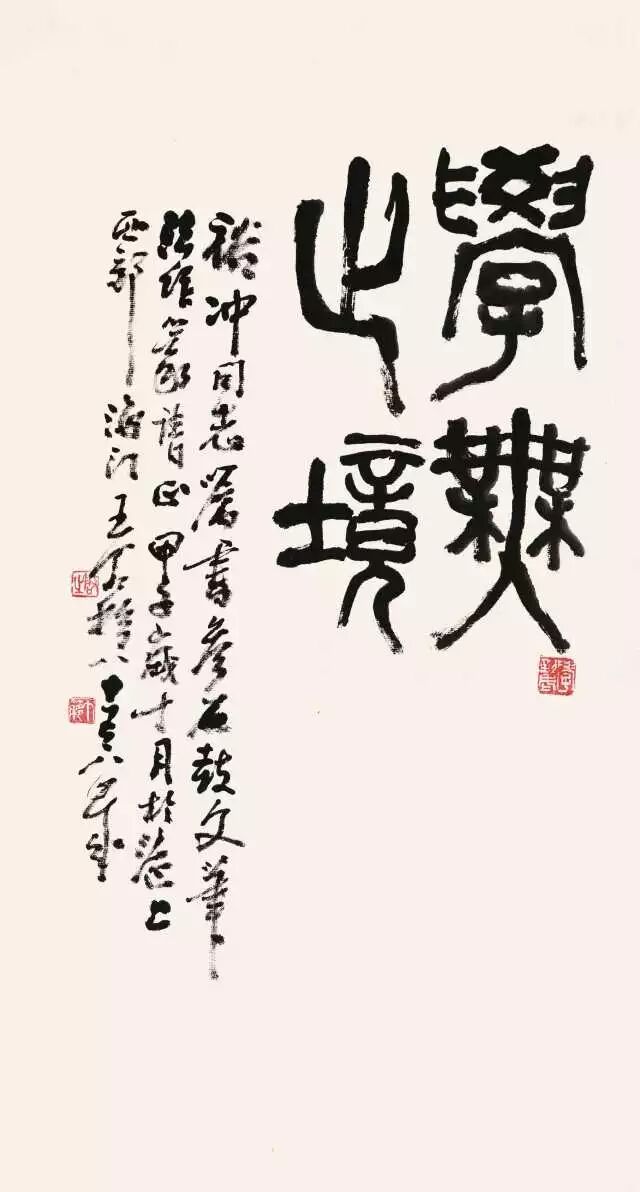 學無
止境
裕冲同志屬書参石鼓文筆
法作篆請正甲子歲十月於滬上
西郊海門王个簃八十有八年
启之